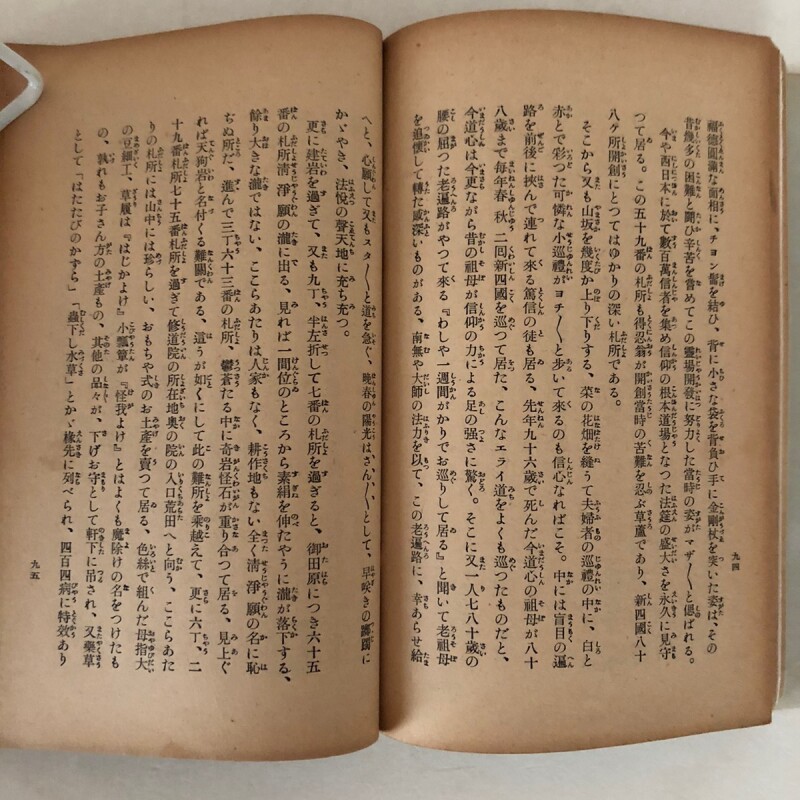 福德圓滿な面相に、チヨン髷を結び、背に小さな袋を背負ひ手に金剛杖を突いた姿は、その
昔幾多の困難と鬪ひ辛苦を嘗めてこの靈場開發に努力した當時の姿がマザ〱と偲ばれる。
今や西日本に於て數百萬信者を集め信仰の根本道場となつた法莚の盛大さを永久に見守
つて居る。この五十九番の札所も得忍翁が開創當時の苦難を忍ぶ草廬であり、新四國八十
八ヶ所開創にとつてはゆかりの深い札所である。
そこから又も山坂を幾度か上り下りする、菜の花畑を縫うて夫婦者の巡禮の中に、白と
赤とで彩つた可憐な小巡禮がヨチ〱と步いて來るのも信心なればこそ。中には盲目の遍
路を前後に挾んで連れて來る篤信の徒も居る、先年九十六歲で死んだ今道心の祖母が八十
八歲まで每年春秋二回新四國を巡つて居た、こんなエライ道をよくも巡つたものだと、
今道心は今更ながら昔の祖母が信仰の力による足の强さに驚く。そこに又一人七八十歲の
腰の屈つた老遍路がやつて來る『わしや一週間がかりでお巡りして居る』と聞いて老祖母
を追懷して轉た感深いものがある、南無や大師の法力を以て、この老遍路に、幸あらせ給
九四
へと、心願して又もスタ〱と道を急ぐ、晩春の陽光はさん〱として、早咲きの躑躅に
かゞやき、法悅の聲天地に充ち充つ。
更に建岩を過ぎて、又も九丁、半左折して七番の札所を過ぎると、御田原につき六十五
番の札所淸淨願の瀧に出る、見れば一間位のところから素絹を伸たやうに瀧が落下する、
餘り大きな瀧ではない、ここらあたりは人家もなく、耕作地もない全く淸淨願の名に恥
ぢぬ所だ、進んで三丁六十三番の札所、鬱蒼たる中に奇岩怪石が重り合つて居る、見上ぐ
れば天狗岩と名付くる難關である、這うが如くにして此の難所を乘越えて、更に六丁、二
十九番札所七十五番札所を過ぎて修道院の所在地奧の院の入口荒田へと向う、ここらあた
りの札所には山中には珍らしい、おもちや式のお土產を賣つて居る、色絲で組んだ母指大
の豆細工、草履は『はじかよけ』小瓢簞が『怪我よけ』とはよくも魔除けの名をつけたも
の、孰れもお子さん方の土產もの、其他の品々が、下げお守として軒下に吊され、又藥草
として「はたたびのかずら」「蟲下し水草」とかゞ椽先に列べられ、四百四病に特效あり
九五